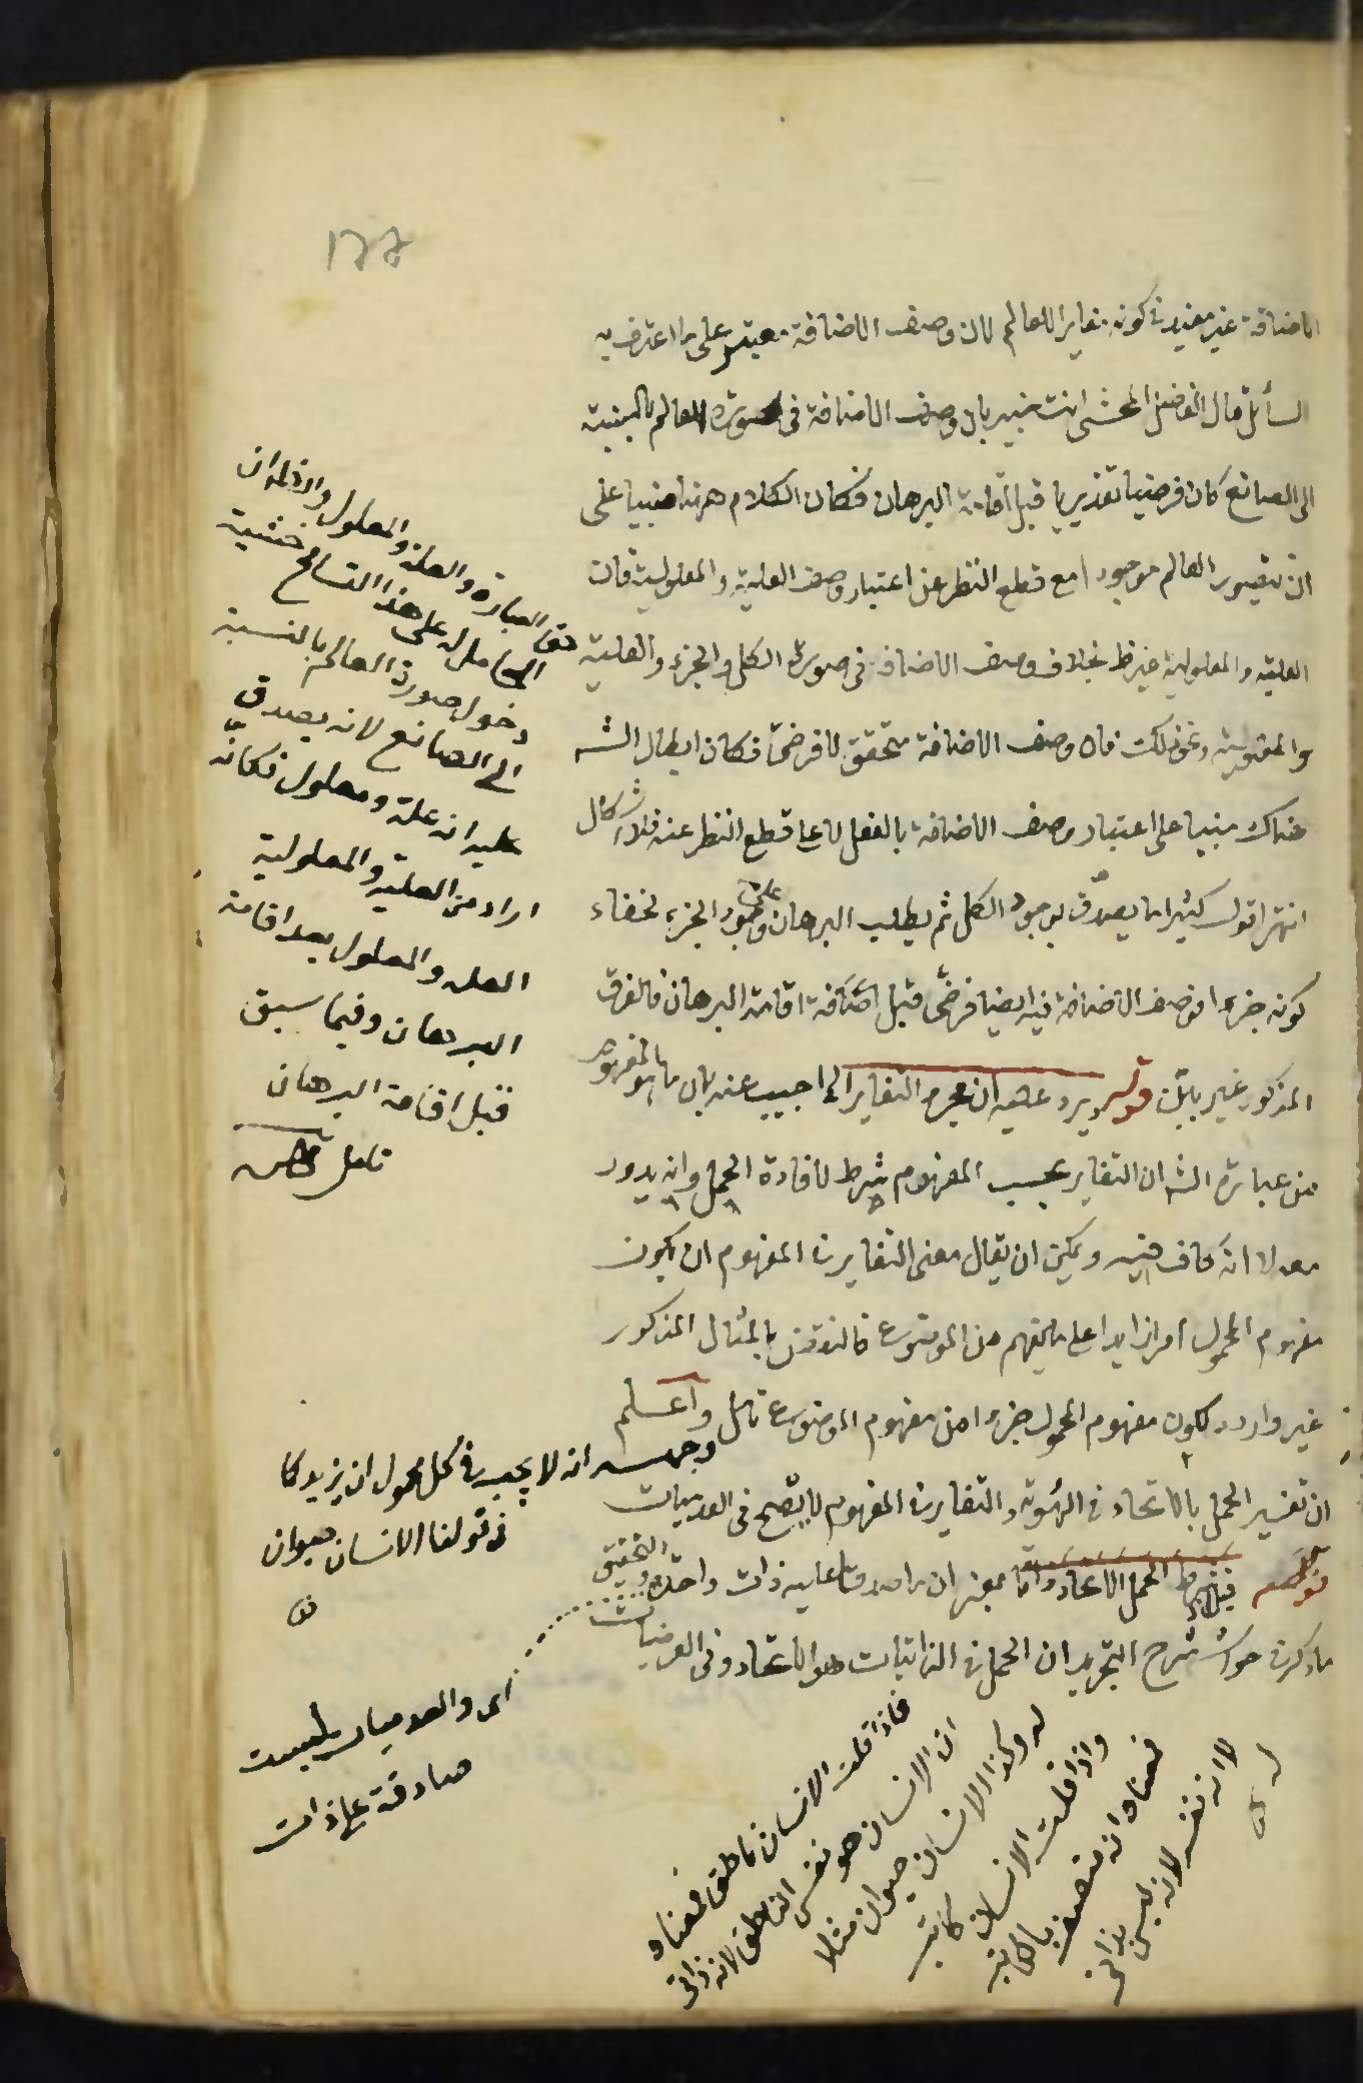 ١٢٢
الاضافة غير مفيد في كونه مغايرا للعالم لان وصف الاضافة معتبر على ما اعترف به
السائل قال الفاضل المحشى انت خبير بان وصف الاضافة في صورة العالم بالنسبة
الى الصانع كان فرضيا تقديريا قبل اقامة البرهان فكان الكلام ههنا مبنيا على
ان تصور العالم موجودا مع قطع النظر عن اعتبار وصف العلية والمعلولية فان
العلية والمعلولية بخلاف وصف الاضافة في صورة الكل والجزء والعلية
والمعلولية ونحو ذلك فان وصف الاضافة متحقق لا فرضى فكان ابطال الشه
هناك مبنيا على اعتبار وصف الاضافة بالفعل لا على قطع النظر عنه فلا اشكال
انتهى اقول كثيرا ما يصدق بوجود الكل ثم يطلب البرهان على وجود الجزء لخفاء
كونه جزءا فوصف الاضافة فيه ايضا فرضى قبل اقامة البرهان فالفرق
المذكور غير بين قوله ويرد عليه ان مجرد التغاير الخ اجيب عنه بان ما هو المفهوم
من عبارة الشه ان التغاير بحسب المفهوم شرط لافادة الحمل وانه يدور
معه لا انه كاف فيه ويمكن ان يقال معنى التغاير في المفهوم ان يكون
مفهوم المحمول امرا زايدا على ما يفهم من الموضوع فالنقض بالمثال المذكور
غير وارد لكون مفهوم المحمول جزءا من مفهوم الموضوع تامل واعلم
ان تفسير الحمل بالاتحاد في الهوية والتغاير في المفهوم لا يصح في العدميات
قوله الحمل الاتحاد بمعنى ان ما صدقا عليه ذات واحدة والتحقيق
ما ذكر في حواشى شرح التجريد ان الحمل في الذاتيات هو الاتحاد وفى العرضيات
حق العبارة والعلة والمعلول
الحامل له على هذا التسامح خشية
دخول صورة العالم بالنسبة
الى الصانع لانه يصدق
عليه انه علة ومعلول فكانه
اراد من العلية والمعلولية
العلة والمعلول بعد اقامة
البرهان وفيما سبق
قبل اقامة البرهان
تامل
وجهه انه لا يجب في كل محمول ان يزيد كما
في قولنا الانسان حيوان
اى والعدميات ليست
صادقة على ذات
فاذا قلت الانسان ناطق فمعناه
ان الانسان هو نفس الناطق لانه ذاتى
له وكذا الانسان حيوان مثلا
واذا قلت الانسان كاتب
فمعناه انه متصف بالكاتب
لا انه نفسه لانه ليس بذاتى
له